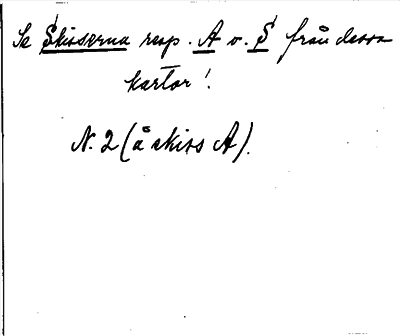 Se Skisserna resp. A o. S från dessa
kartor!
N. 2 (å skiss A).